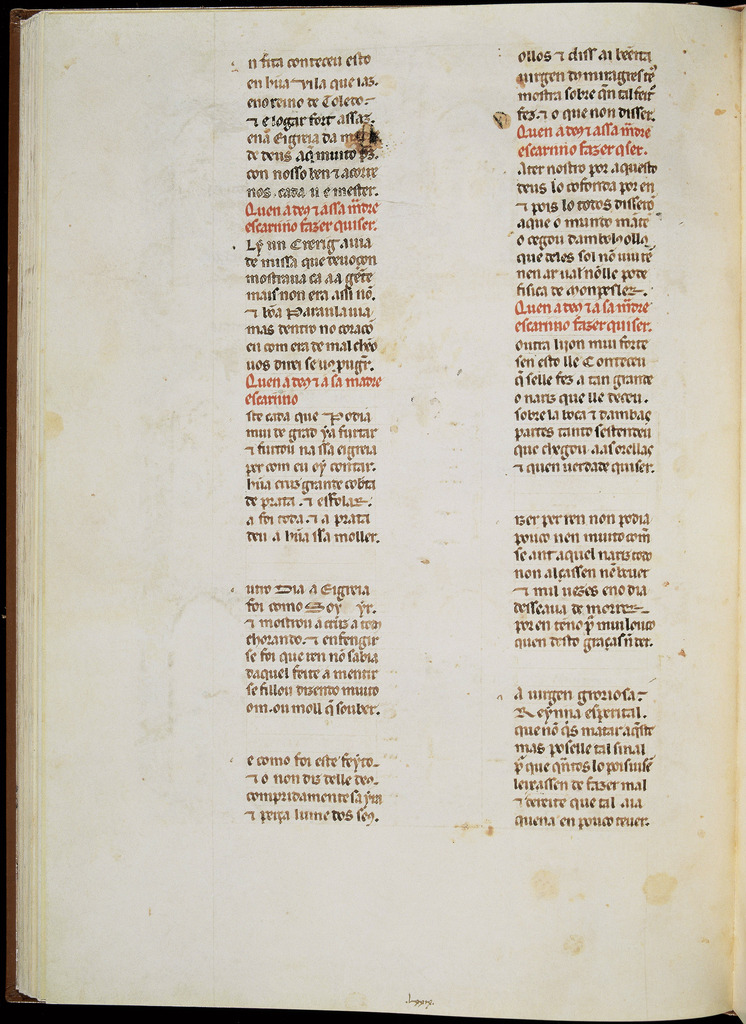 n fita conteceu esto
en hũa vila que iaz.
eno reino de Toledo.
⁊ e logar fort assaz.
enã Eigreia da m
de deus aq̇ muito pz̃.
con nosso ben ⁊ acorre
nos. cada u e mester.
Quen a deus ⁊ assa mr̃e
escarnno fazer quiser.
Ly un Crerig auia
de missa que deuoçon
mostraua ca aa gẽte
mais non era assi nõ.
⁊ bõa Paraula uia
mas dentro no coraçõ
eu com era de mal chẽo
uos direi se uos pugr̃.
Quen a deus ⁊ a sa madre
escarnno
sto cada que Podia
mui de grado ya furtar
⁊ furtou na ssa eigreia
per com eu oy contar.
hũa cruz grande cobta
de prata. ⁊ esfolar.
a foi toda. ⁊ a prata
deu a hũa ssa moller.
utro Dia a Eigreia
foi como Soy yr.
⁊ mostrou a cruz a todos
chorando. ⁊ enfengir
se foi que ren nõ sabia
daquel feite a mentir
se fillou dizendo muito
om. ou moll q̃ souber.
e como foi este feyto.
⁊ o non diz delle deus.
compridamente sa yra
⁊ perça lume dos seus.
ollos ⁊ diss ai bẽeita
uirgen
mostra sobre qñ tal feit
fez. ⁊ o que non disser.
Quen a deus ⁊ assa mr̃e
escarnno fazer q̇ser.
Ater nostro por aquesto
deus lo cofonda por en
⁊ pois lo todos disserõ
aque o mundo mãtẽ
o cegou dambolos ollos
que deles sol nõ uiu rẽ
nen ar ual nõlle pode
fisica de Monpesler.
Quen a deus ⁊ a sa mr̃e
escarnno fazer quiser.
outra liion mui forte
sen esto lle Conteceu
q̃ selle fez a tan grande
o nariz que lle deceu.
sobre la boca ⁊ dambas
partes tanto sestendeu
que chegou aas orellas
⁊ quen uerdade quiser.
izer per ren non podia
pouco nen muito com̃
se ant aquel nariz todo
non alçassen nẽ beuer
⁊ mil uezes eno dia
desseaua de morrer.
por en tẽno p̃ mui louco
quen desto graças ñ der.
A uirgen groriosa.
Reynna esperital.
que nõ q̇s matar aq̃ste
mas poselle tal sinal
p̃ que qñtos lo poi s uisẽ
leixassen de fazer mal
⁊ dereite que tal aia
quena en pouco teuer.